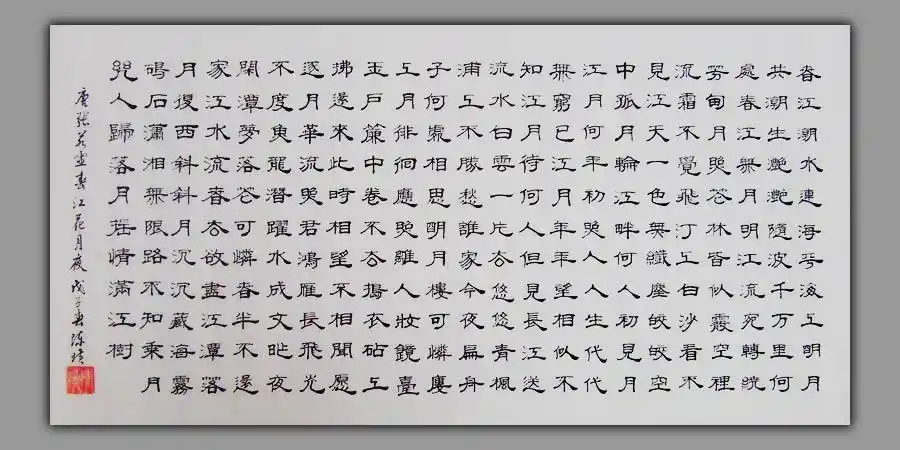 春江潮水連海平海上明月
共潮生灩灩隨波千万里何
處春江無月明江流宛轉繞
芳甸月照花林皆似霰空裡
流霜不覺飛汀上白沙看不
見江天一色無纖塵皎皎空
中孤月輪江畔何人初見月
江月何年初照人人生代代
無窮已江月年年望相似不
知江月待何人但見長江送
流水白雲一片去悠悠青楓
浦上不勝愁誰家今夜扁舟
子何處相思明月樓可憐樓
上月徘徊應照離人妝鏡臺
玉戶簾中卷不去搗衣砧上
拂還來此時相望不相聞願
逐月華流照君鴻雁長飛光
不度魚龍潛躍水成文昨夜
閑潭夢落花可憐春半不還
家江水流春去欲盡江潭落
月復西斜斜月沉沉藏海霧
碣石瀟湘無限路不知乘月
幾人歸落月搖情滿江樹
唐張若虛春江花月夜 戊子春 陳